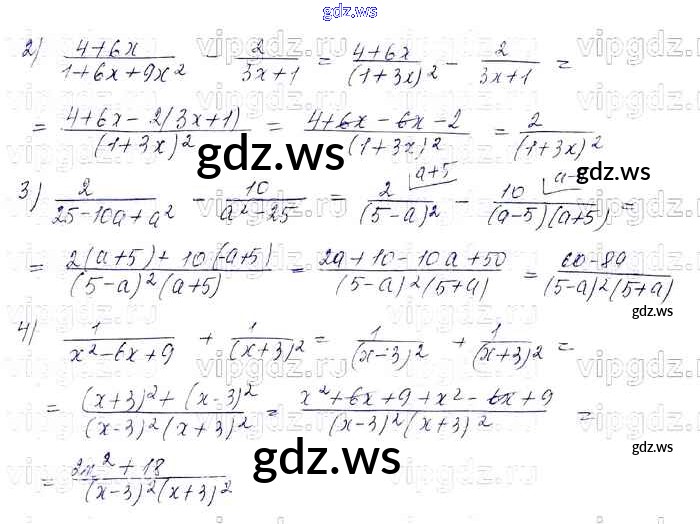 gdz.ws
2) (4+6x)/(1+6x+9x²) - 2/(3x+1) = (4+6x)/(1+3x)² - 2/(3x+1) =
= (4+6x-2(3x+1))/(1+3x)² = (4+6x-6x-2)/(1+3x)² = 2/(1+3x)²
gdz.ws
gdz.ws
3) 2/(25-10a+a²) - 10/(a²-25) = 2/(5-a)² (a+5 - 10/((a-5)(a+5)) (a- =
= (2(a+5)+10(-a+5))/((5-a)²(a+5)) = (2a+10-10a+50)/((5-a)²(5+a)) = (60-8a)/((5-a)²(5+a))
gdz.ws
4) 1/(x²-6x+9) + 1/(x+3)² = 1/(x-3)² + 1/(x+3)² =
= ((x+3)²+(x-3)²)/((x-3)²(x+3)²) = (x²+6x+9+x²-6x+9)/((x-3)²(x+3)²) =
gdz.ws
gdz.ws
= (2x²+18)/((x-3)²(x+3)²)
gdz.ws